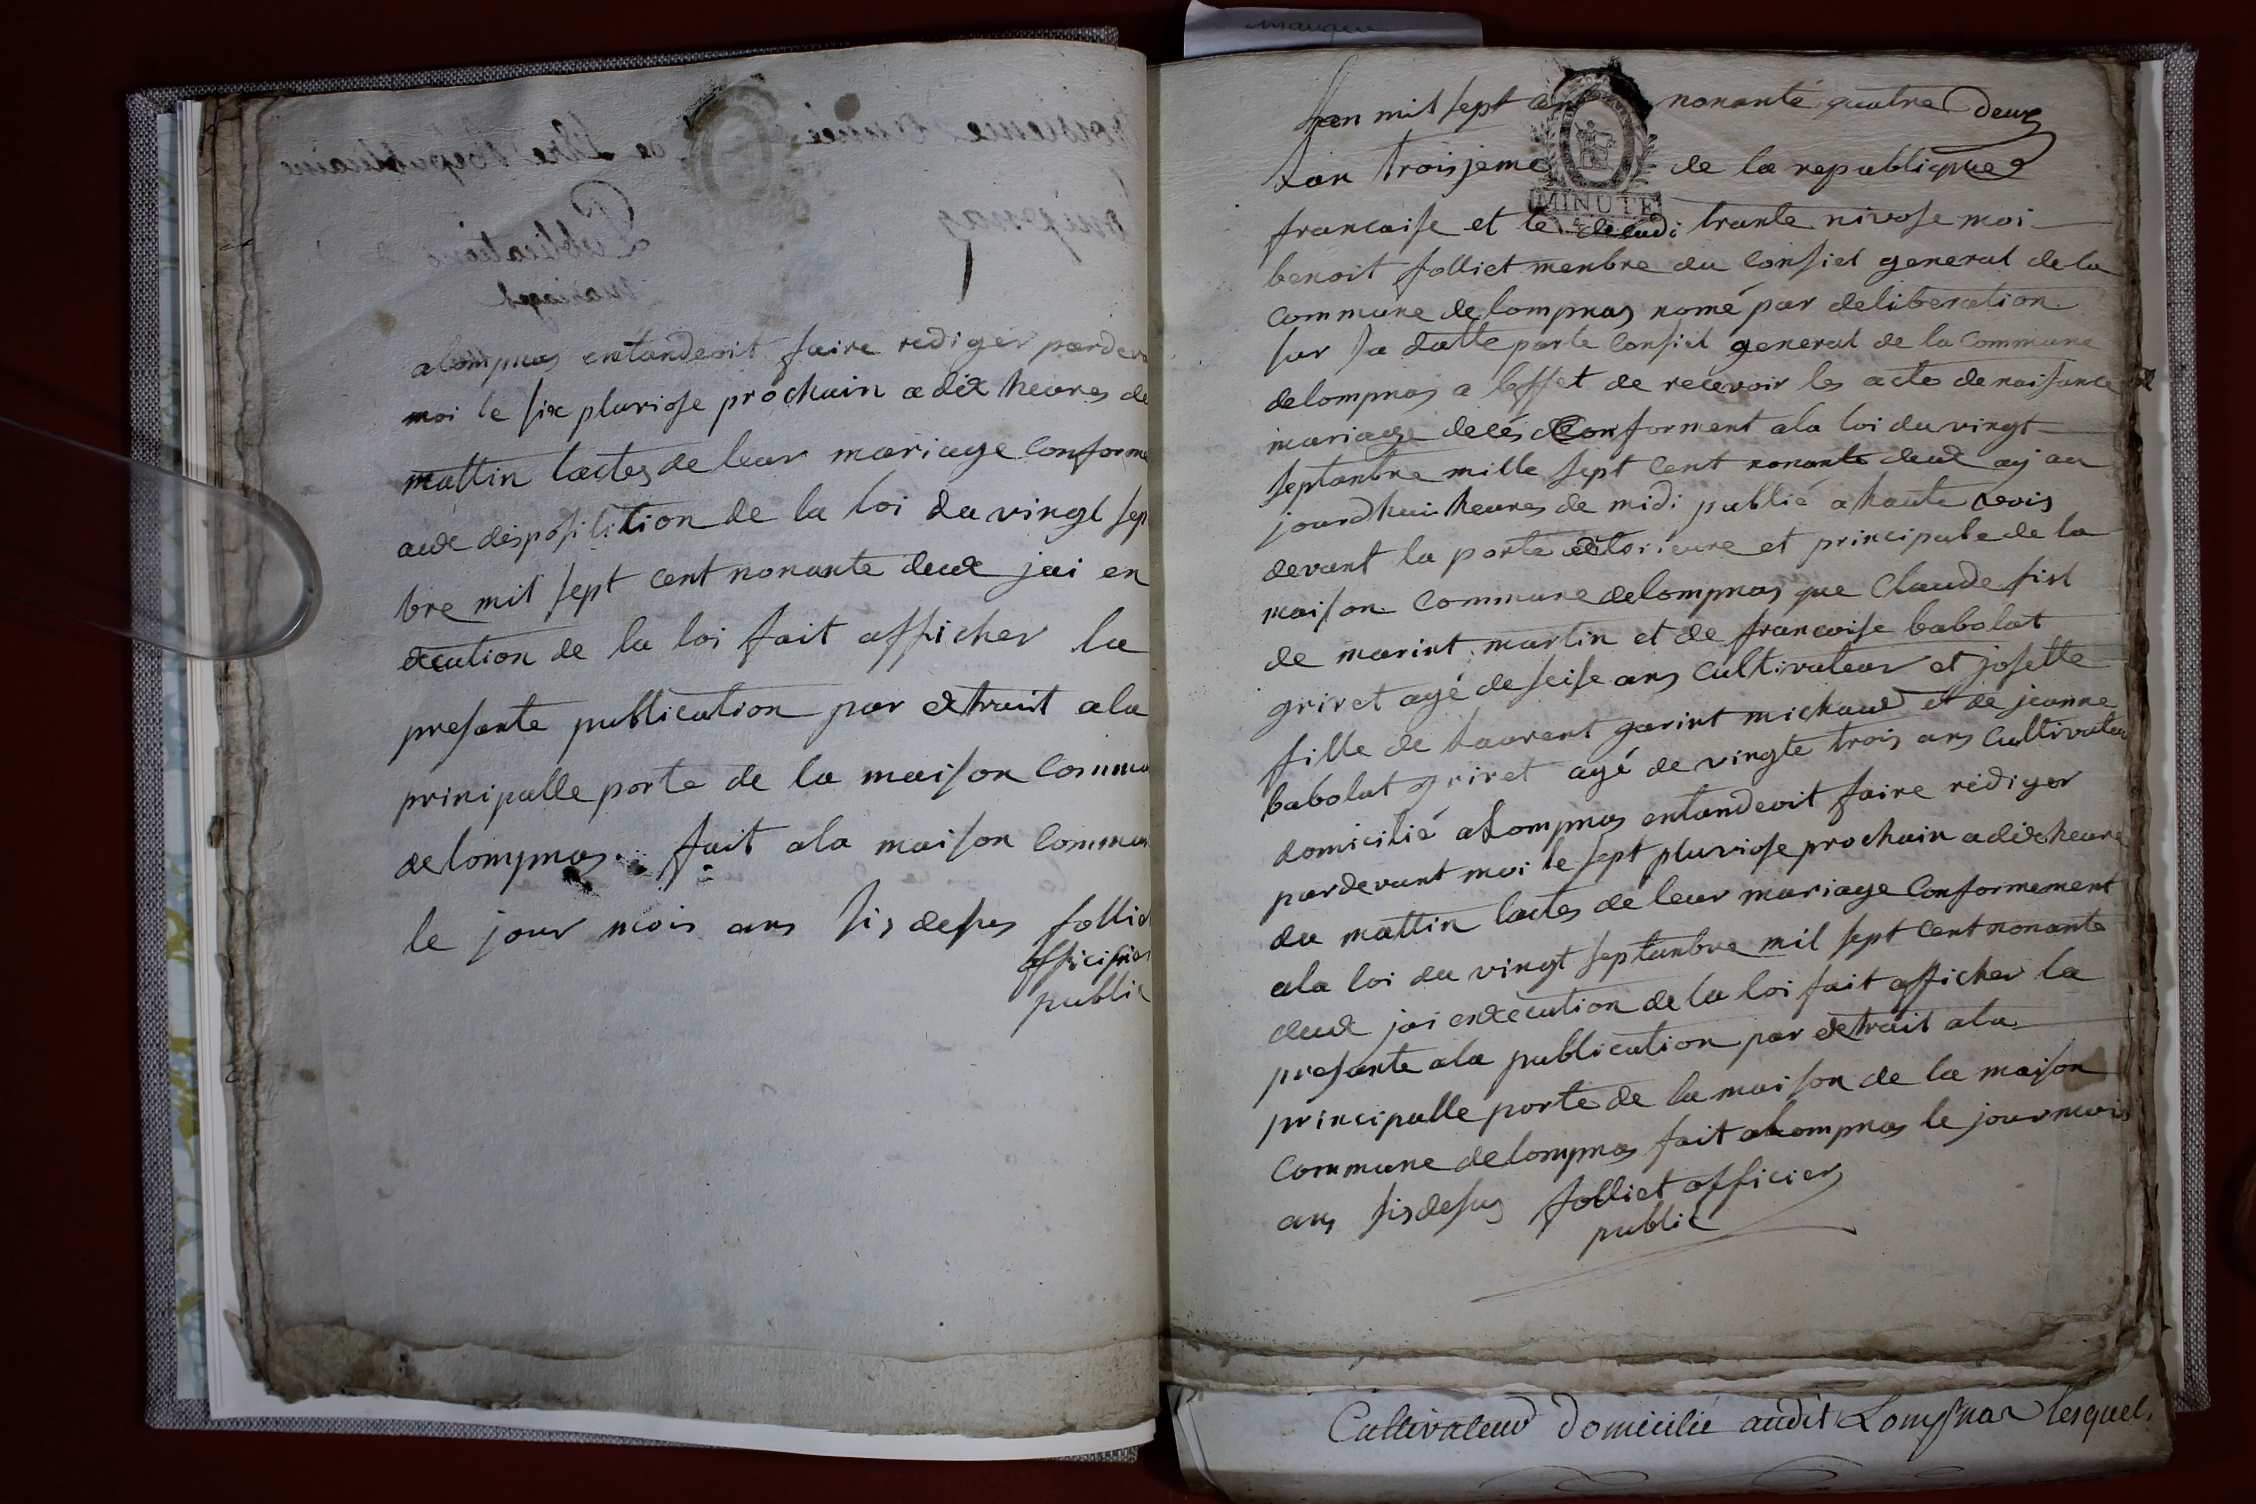 alompnas entandevit faire rediger pardev
moi le six pluviose prochain a dix heures de
mattin lactes de leur mariage conforme
aux disposition de la loi du vingt sep
bre mil sept cent nonante deux jai en
execution de la loi fait afficher la
presante publication par extrait ala
prinipalle porte de la maison commu
delompnas. fait ala maison commun
le jour mois ans sis desus folliet
officier
public
lan mil sept cen nonante quatre deux
Lan troisjeme de la republique
MINUTE
francaise et le decadi trante nivose moi
benoit folliet menbre du consiel general de la
commune delompnas nomé par deliberation
sur sa datte par le consiel general de la commune
delompnas a leffet de recevoir les actes de naisance et
mariage decés conforment ala loi du vingt
septanbre mille sept cent nonante deux aj au
jourdhui heures de midi publié a haute vois
devant la porte exterieure et principale de la
maison commune delompnas que Claude fisl
de marint martin et de francoise babolat
griret agé de seise ans cultivateur et josette
fille de Laurent garint michaud et de jeanne
babolat griret agé de vingte trois ans cultivateu
domicilié a Lompnas entandevit faire rédiger
pardevant moi le sept pluviose prochain a dix heure
du mattin lactes de leur mariage conformement
ala loi du vingt septanbre mil sept cent nonante
deux jai enxecution de la loi fait afficher la
presante ala publication par extrait ala
principalle porte de la maison de la maison
commune delompnas fait alompnas le jour mois
ans sis desus folliet officier
public
Cultivateur domicilié audit Lompnas lesquel